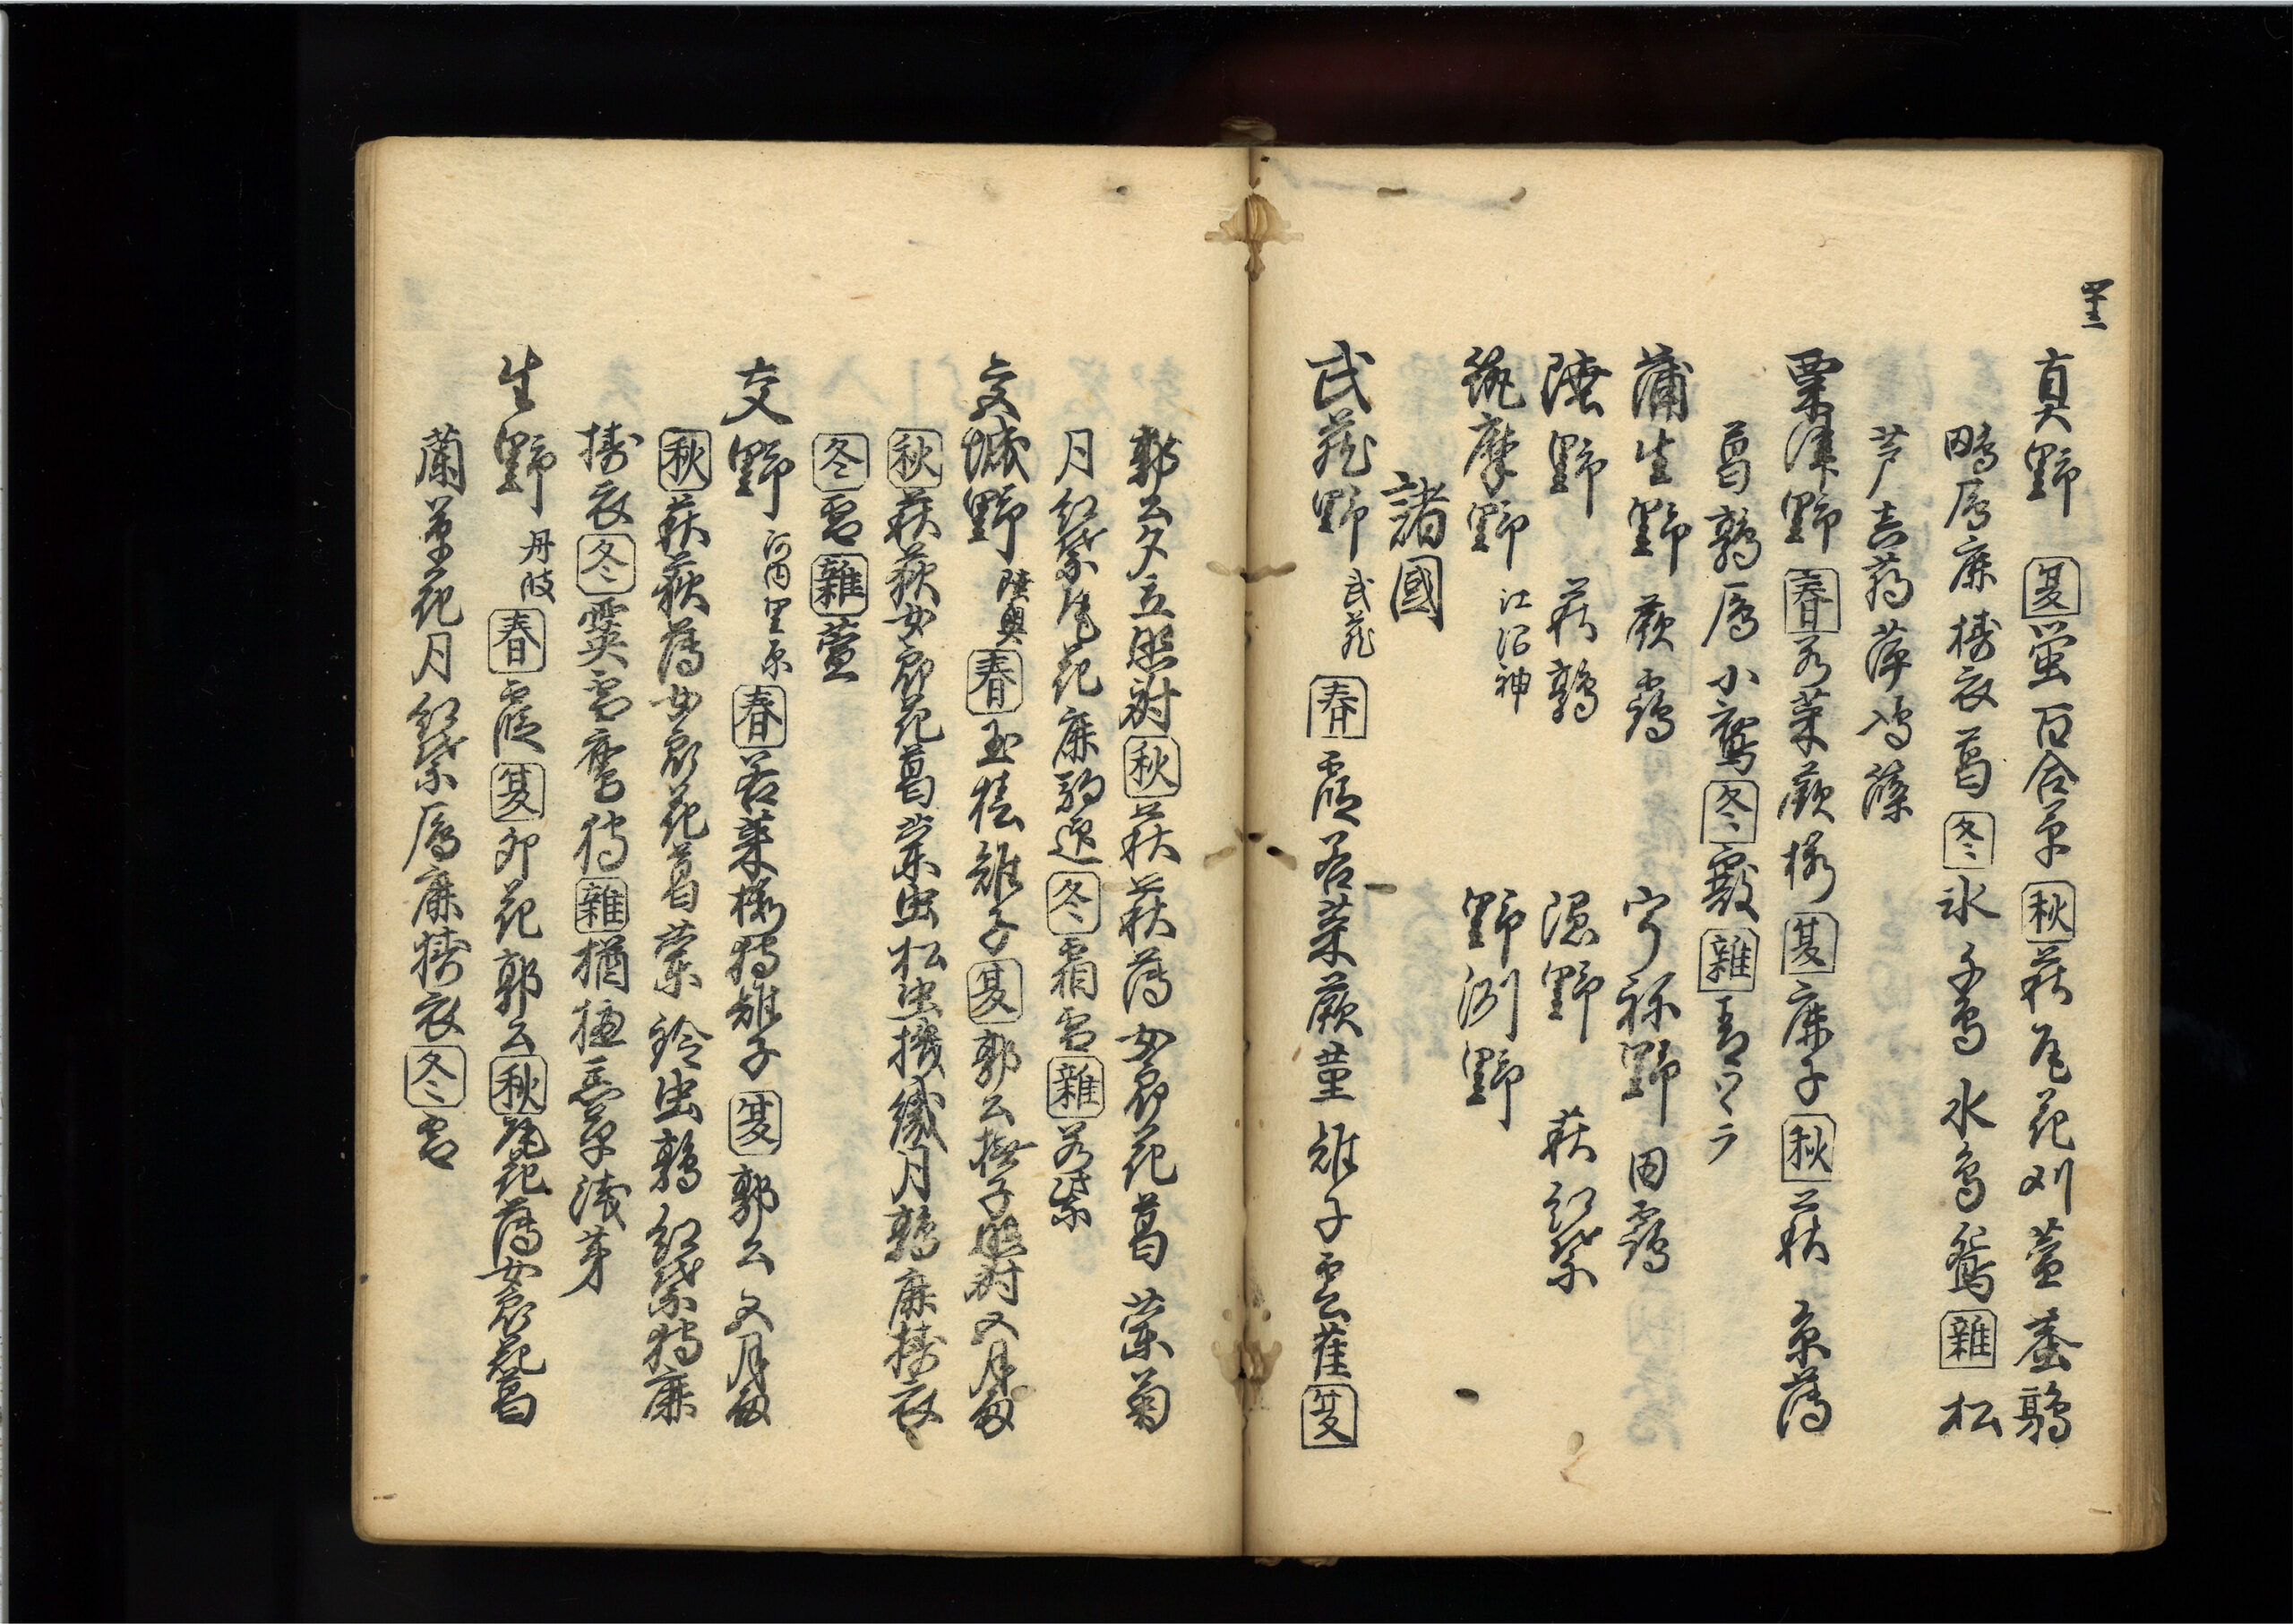 真野 夏 蛍 百合草 秋 萩 尾花 刈萱 蚕 鶉
鴫 鴈 鹿 擣衣 葛 冬 氷 千鳥 水鳥 鴛 雜 松
芦 菰 萍 鳰 篠
粟津野 春 若菜 蕨 桜 夏 鹿子 秋 萩 薄
葛 鶉 鴈 小鷹 冬 霰 雜 青ツヽラ
蒲生野 蕨 霞 宇祢野 田霞
陸野 萩 鶉 浥野 萩 紅葉
筑摩野 江沼神 野洲野
諸國
武蔵野 武蔵 春 霞 若菜 蕨 菫 雉子 雲雀 夏
郭公 夕立 照射 秋 萩 荻 薄 女郎花 葛 蘭 菊
月 紅葉 尾花 鹿 駒迎 冬 霜 雪 雜 若紫
宮城野 陸奥 春 玉椿 雉子 夏 郭公 撫子 照射 五月雨
秋 萩 荻 女郎花 葛 蘭 虫 松虫 機織 月 鶉 鹿 擣衣
冬 雪 雜 萱
交野 河内 春 若菜 桜 狩 雉子 夏 郭公 五月雨
秋 萩 荻 薄 女郎花 葛 蘭 鈴虫 鶉 紅葉 狩 鹿
擣衣 冬 霙 雪 鷹狩 雜 楢 忘草 浅茅
生野 丹波 春 霞 夏 卯花 郭公 秋 尾花 薄 女郎花 葛
蘭 草花 月 紅葉 鴈 鹿 擣衣 冬 雪